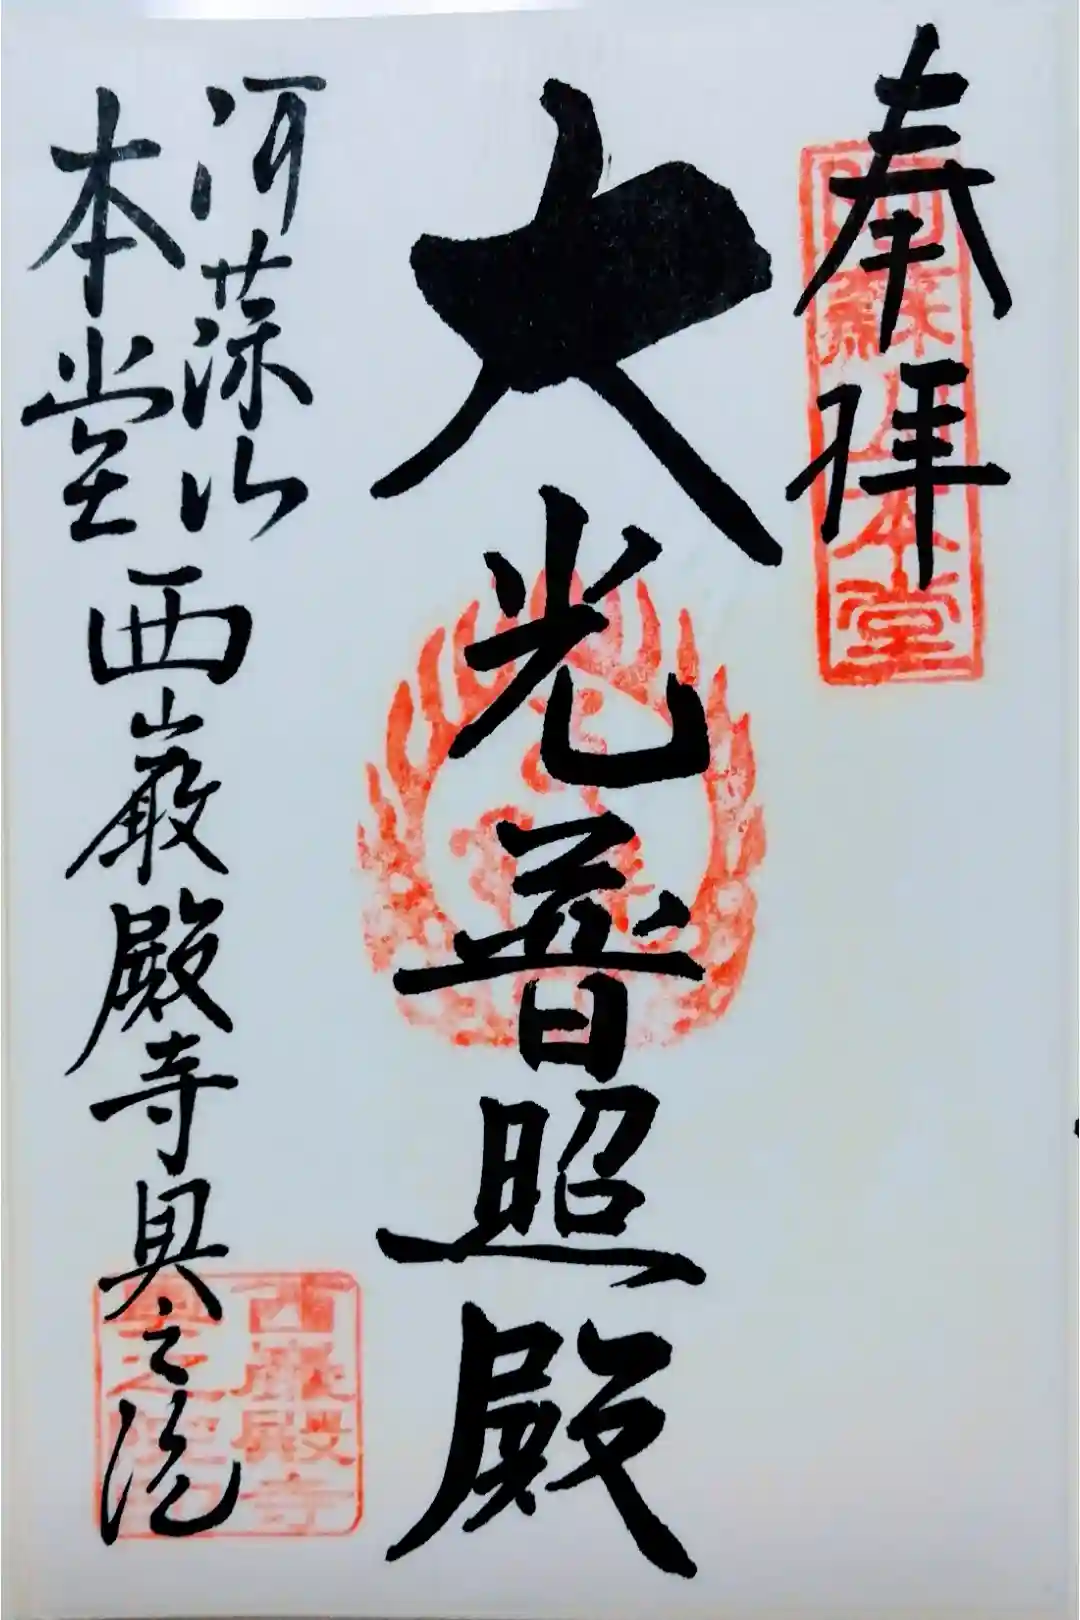 奉拝
阿蘇山本堂
大光普照殿
阿蘇山
本堂 西巌殿寺奥之院
西巌殿寺
奥之院印